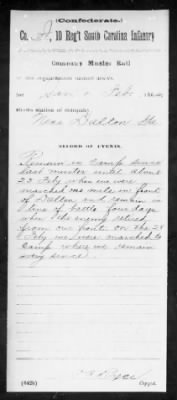 (Confederate.)
Co. I, 10 Reg't South Carolina Infantry
Company Muster Roll
of the organization named above,
for Jan & Feb, 1864.
Station of company,
Near Dalton Ga
RECORD OF EVENTS.
Remain in Camp since
last muster until about
23 Feby when we were
marched one mile in front
of Dalton and remain in
line of battle four days
when the enemy retired
from our front on the 28
Feby we were marched to
Camp where we remain
ever since.
(642b) Copyist.